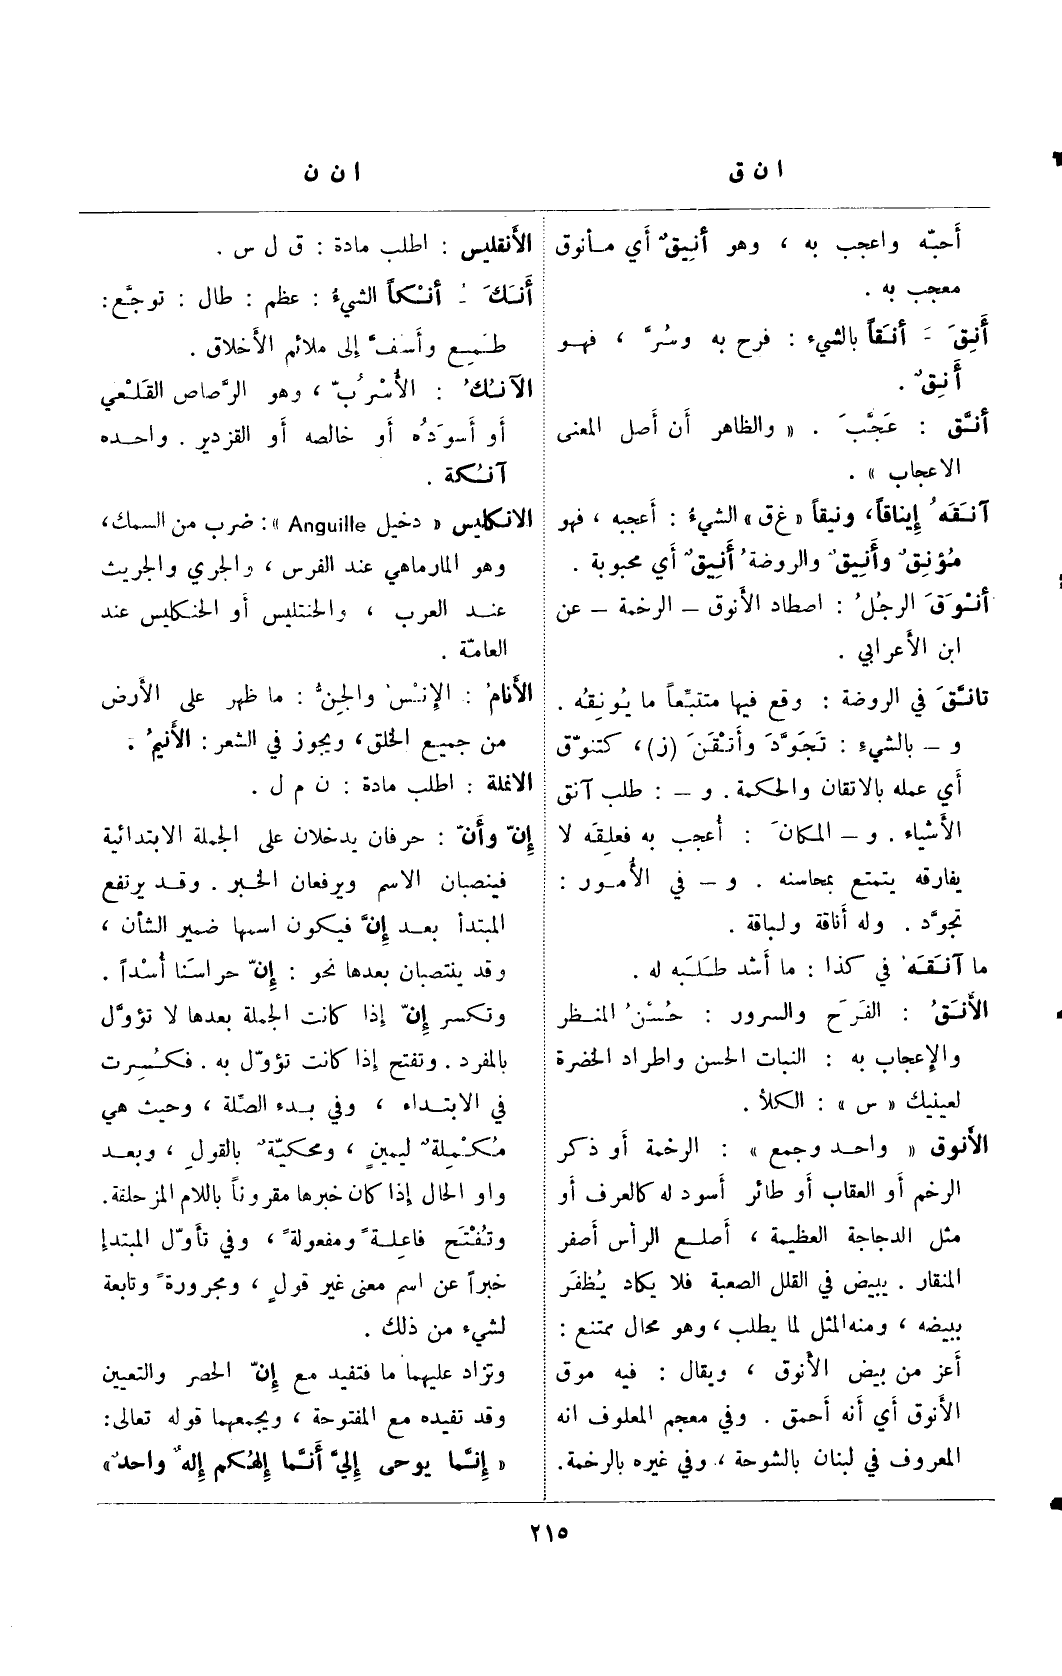 ا ن ق
أحبّه واعجب به ، وهو أنِيقٌ أي مأنوق
معجب به .
أَنِقَ َ أنَقاً بالشيء : فرح به وسُرَّ ، فهو
أَنِقٌ .
أنَّق : عَجَّبَ . « والظاهر أن أصل المعنى
الاعجاب » .
آنَقَهُ إيناقاً، ونيقاً « غ ق » الشيءُ : أعجبه ، فهو
مُؤنِقٌ وأَنِيقٌ والروضةُ أَنِيقٌ أي محبوبة .
أنْوَقَ الرجُلُ : اصطاد الأنوق – الرخمة – عن
ابن الأعرابي .
تانَّقَ في الروضة : وقع فيها متتبّعاً ما يُونِقُه .
و – بالشيء : تَجَوَّدَ وأتْقَنَ (ز)، كتنوّق
أي عمله بالاتقان والحكمة . و – : طلب آنق
الأشياء . و – المكانَ : أُعجب به فعلِقَه لا
يفارقه يتمتع بمحاسنه . و – في الأُمور :
تجوَّد . وله أناقة ولباقة .
ما آنَقَهُ في كذا : ما أشد طَلَبَه له .
الأَنَقُ : الفَرَح والسرور : حُسْنُ المنظر
والإعجاب به : النبات الحسن واطراد الخضرة
لعينيك « س » : الكلأ .
الأَنوق « واحد وجمع » : الرخمة أو ذكر
الرخم أو العقاب أو طائر أسود له كالعرف أو
مثل الدجاجة العظيمة ، أصلع الرأس أصفر
المنقار . يبيض في القلل الصعبة فلا يكاد يُظفَر
ببيضه ، ومنه المثل لما يطلب ، وهو محال ممتنع :
أعز من بيض الأنوق ، ويقال : فيه موق
الأنوق أي أنه أحمق . وفي معجم المعلوف انه
المعروف في لبنان بالشوحة ، وفي غيره بالرخمة .
ا ن ن
الأنقليس : اطلب مادة : ق ل س .
أَنَكَ ُ أنْكاً الشيءُ : عظم : طال : توجَّع :
طَمِع وأسَفَّ إلى ملائم الأخلاق .
الآنُكُ : الأُسْرُبّ ، وهو الرَّصاص القَلْعي
أو أسوَدُه أو خالصه أو القزدير . واحده
آنُكة .
الانكليس « دخيل Anguille » : ضرب من السمك،
وهو المارماهي عند الفرس ، والجري والجريث
عند العرب ، والحنتليس أو الحنكليس عند
العامّة .
الأَنامُ : الإنسُ والجِنُّ : ما ظهر على الأرض
من جميع الخلق، ويجوز في الشعر : الأَنِيمُ .
الانملة : اطلب مادة : ن م ل .
إنّ وأَنّ : حرفان يدخلان على الجملة الابتدائية
فينصبان الاسم ويرفعان الخبر . وقد يرتفع
المبتدأ بعد إنَّ فيكون اسمها ضمير الشأن ،
وقد ينتصبان بعدها نحو : إنّ حراسَنا أُسْداً .
وتكسر إنّ إذا كانت الجملة بعدها لا تؤوَّل
بالمفرد . وتفتح إذا كانت تؤوّل به . فكُسِرت
في الابتداء ، وفي بدء الصِّلة ، وحيث هي
مُكْمِلةٌ ليمينٍ ، ومحكيّةٌ بالقول ، وبعد
واو الحال إذا كان خبرها مقروناً باللام المزحلقة .
وتُفْتَح فاعِلةً ومفعولةً ، وفي تأوّل المبتدإ
خبراً عن اسم معنى غير قولٍ ، ومجرورةً وتابعة
لشيء من ذلك .
وتزاد عليهما ما فتفيد مع إنّ الحصر والتعيين
وقد تفيده مع المفتوحة ، ويجمعهما قوله تعالى :
« إنَّما يوحى إليَّ أنَّما إلهُكم إلهٌ واحدٌ »
٢١٥